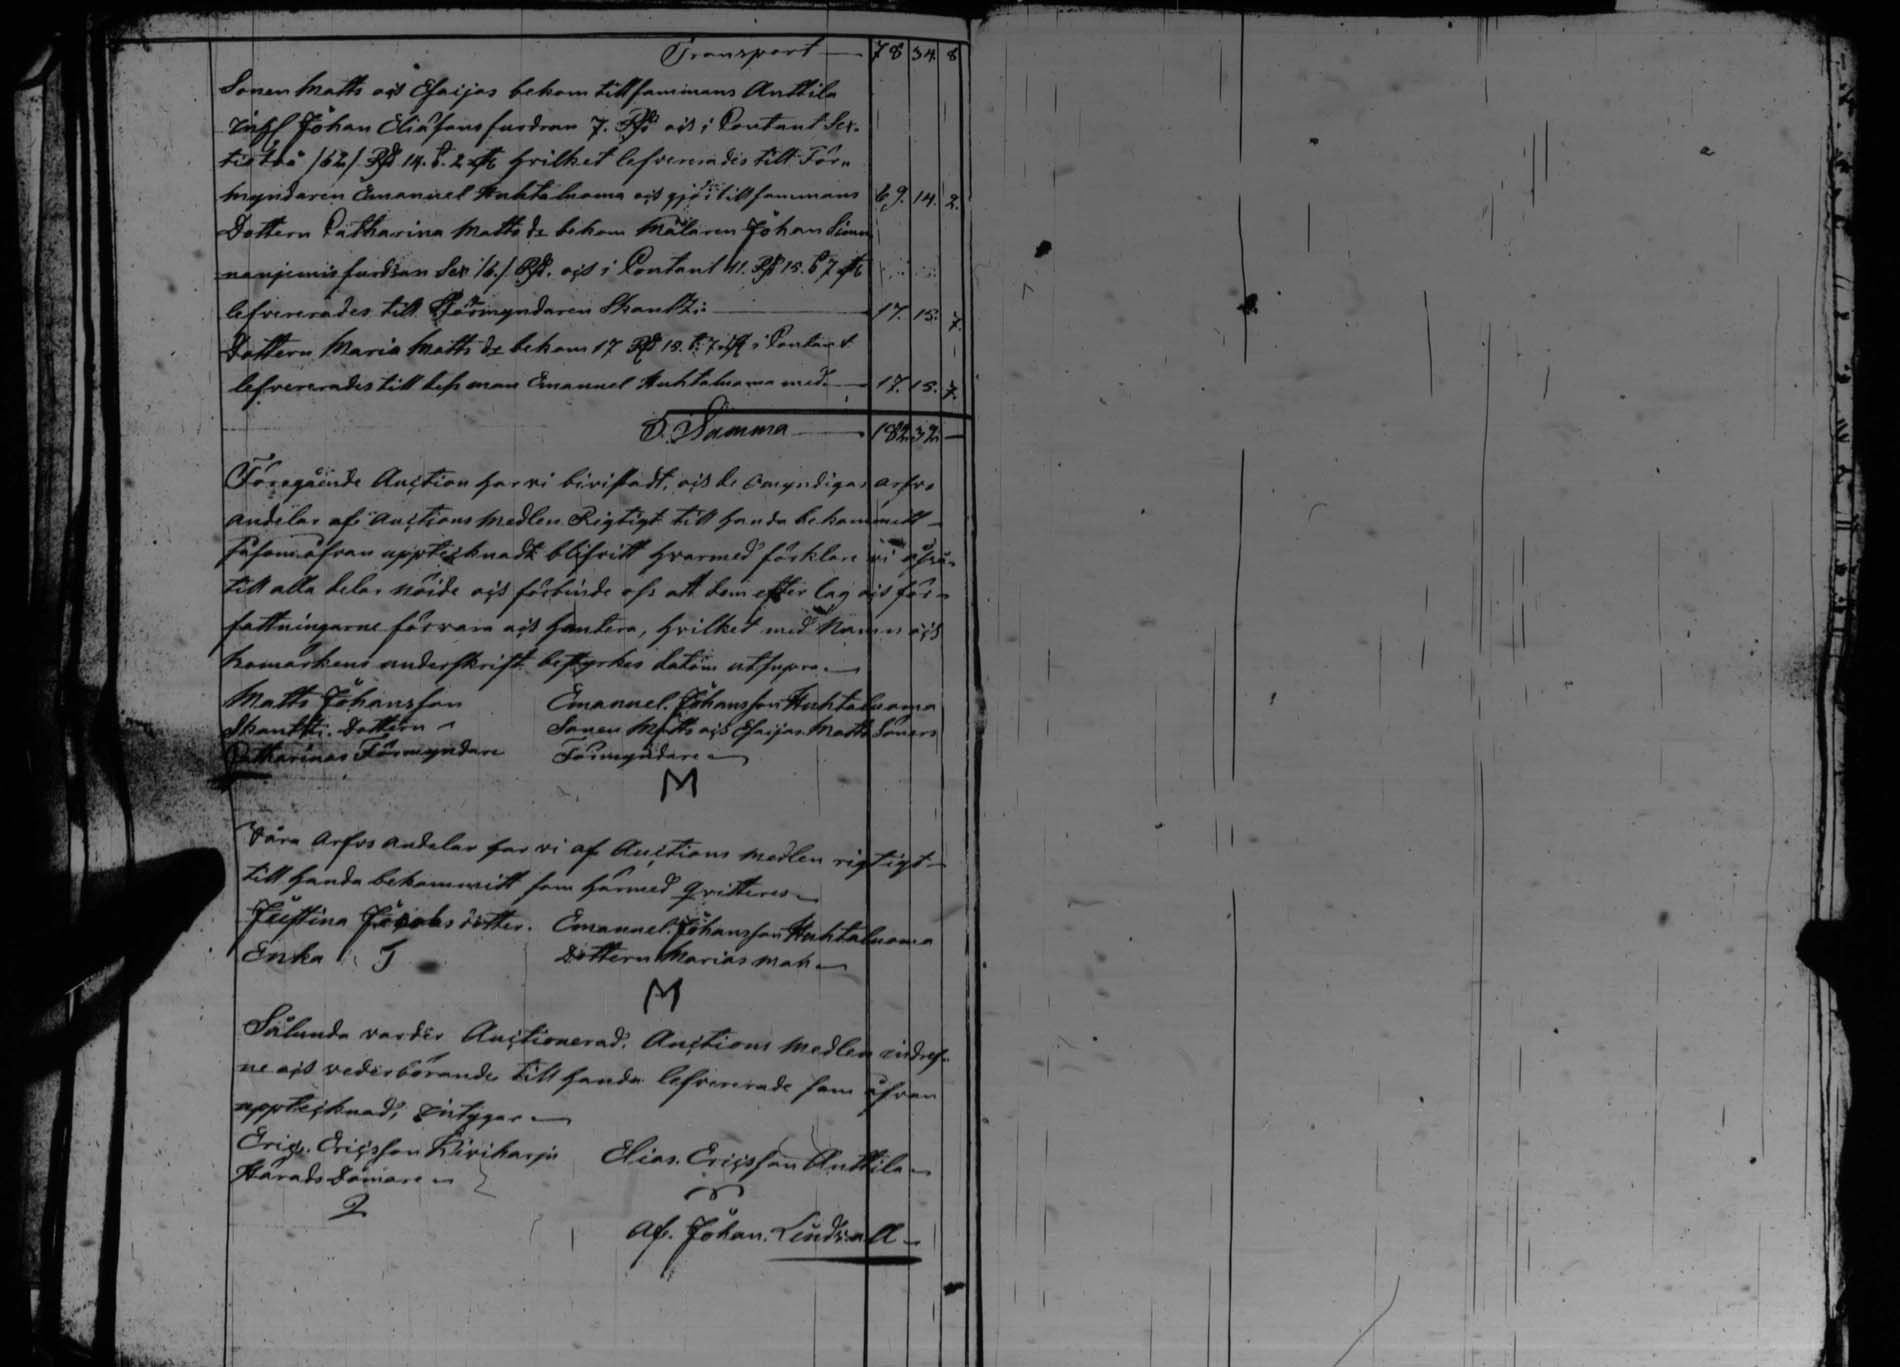 Transport — 78 34. 8
Sonen Matts och Esaijas bekom tillsammans Anttila
Johan Eliäsons fordran 7. Rd och i Contant Sex-
tiotvå /62/. Rd 14. s. 2 hvilket lefvererades till För-
myndaren Emanuel Huhtaluoma och gjör tillsammans 69. 14. 2.
Dottern Catharina Matts dr bekom Målaren Johan
fordran Sex /6./. Rd. och i Contant 11. Rd 15. s 7
lefvererades till Förmyndaren Skantz: — 17. 15. 7.
Dottern Maria Matts dr bekom 17 Rd 15. s. 7 i Contant
lefvererades till dess man Emanuel Huhtaluoma med. — 17. 15. 7.
S. Summa — 182. 32. —
Föregående Auction har vi bivistadt, och de omyndigas arfvs
andelar af Auctions medlen Rigtigt till handa bekommitt
såsom ofvan upptecknadt blifvitt hvarmed förklare vi
till alla delar nöide och förbinde oss att dem efter lag och för-
fattningarne förvara och hantera, hvilket med Namn och
bomärkens underskrift bestyrkes datum utsupra.
Matts Johansson Emanuel. Johansson Huhtaluoma
Dottern Sonen Matts och Esaijas Matts Söners
Catharinas Förmyndare Förmyndare
M
Våra Arfvs andelar har vi af Auctions medlen rigtigt
till handa bekommitt som härmed qvitteres
Justina Jacobs dotter. Emanuel. Johansson Huhtaluoma
Enka J Dottern Marias man
M
Sålunda varder Auctionerad. Auctions medlen indref-
ne och vederbörande till handa lefvererade som ofvan
upptecknad, intygar
Eric. Ericsson Kiviharju Elias. Ericsson Anttila
Härads Dömare
Af. Johan. Lindvall